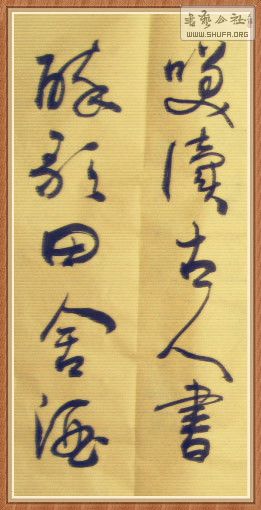 書藝公社
WWW.SHUFA.ORG
咲讀古人書
醉歌田舍酒